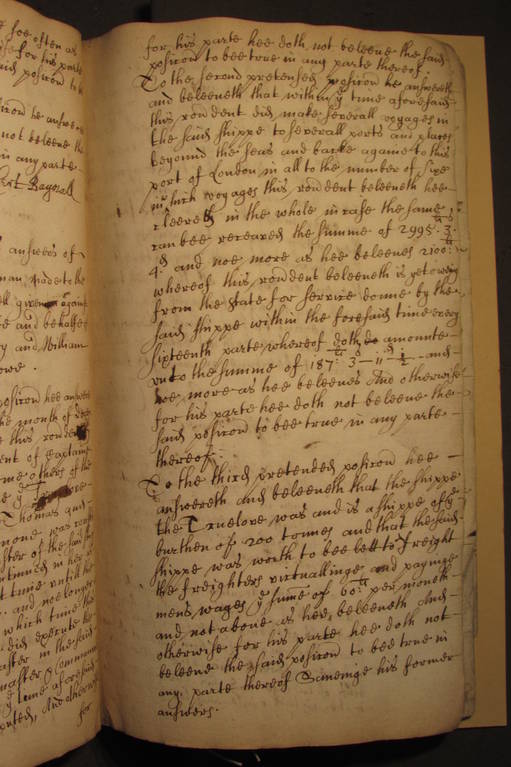 soe often as
for his parte
said posicon to b
sicon he answere
not beleeve th
in any parte
Bagnall
answeres of
man made to the
given against
and behalfe of
and William
owe
posicon hee answer
the month of
this rondent
ent of Captaine
me others of the
Thomas
none was
ster of the said
time untill the
and noe longer
which time the
did execute the
aster in the said
master & Command
time aforesaid
puted, And otherwise
for
for his parte hee doth not beleeve the said
posicon to bee true in any parte thereof
To the second pretensed posicon he answereth
and beleeveth that within ye time aforesaid
this rondent did make severall voyages in
the said shippe to severall ports and places
beyound the seas and backe againe to this
port of London in all to the number of Sixe
in which voyages this rondent beleeveth hee
cleered in the whole in case the same
can bee receaved the summe of 2995. 3.
4d. and noe more as hee beleeves 2100:
whereof this rondent beleeveth is yet oweing
from the State for service donne by the
said shippe within the foresaid time every
sixteenth parte whereof doth amounte
unto the summe of 187: 3 - 11 - ½ - and
noe more as hee beleeves And otherwise
for his parte hee doth not beleeve the
said posicon to bee true in any parte
thereof.
To the third pretended posicon hee
answereth and beleeveth that the shippe
the Truelove was and is a shippe of ye
burthen of 200 tonnes and that the said
shippe was worth to bee lett to freight
the freighters victuallinge and payinge
mens wages ye sume of 60li per moneth
and not above as hee beleeveth And
otherwise for his parte hee doth not
beleeve the said posicon to bee true in
any parte thereof Saveinge his former
answers.